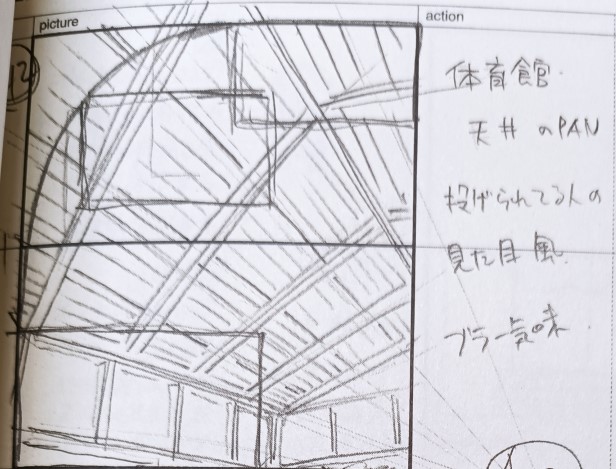 picture
action
12
体育館.
天井のPAN
投げられてる人の
見た目風.
ブラー気味.